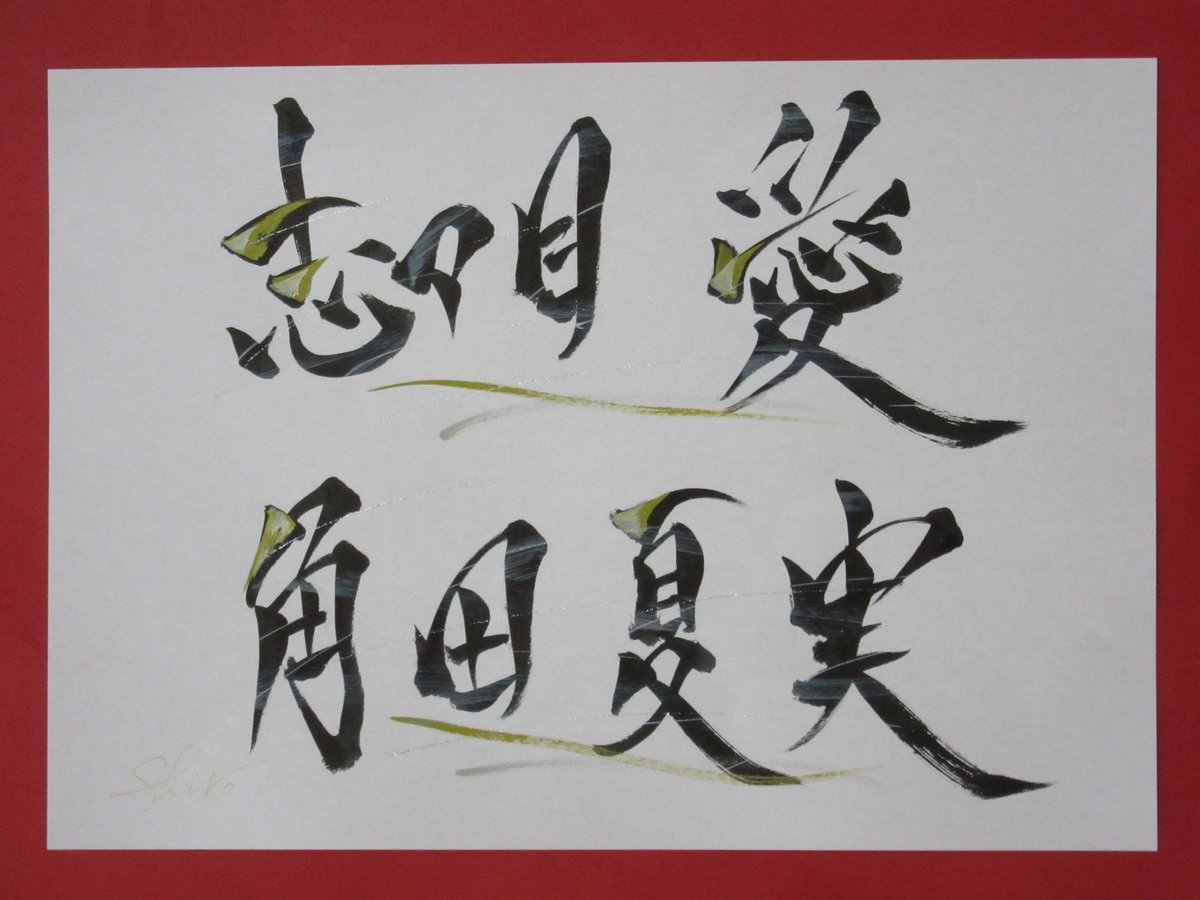 志々目 愛
角田夏実
Shiro